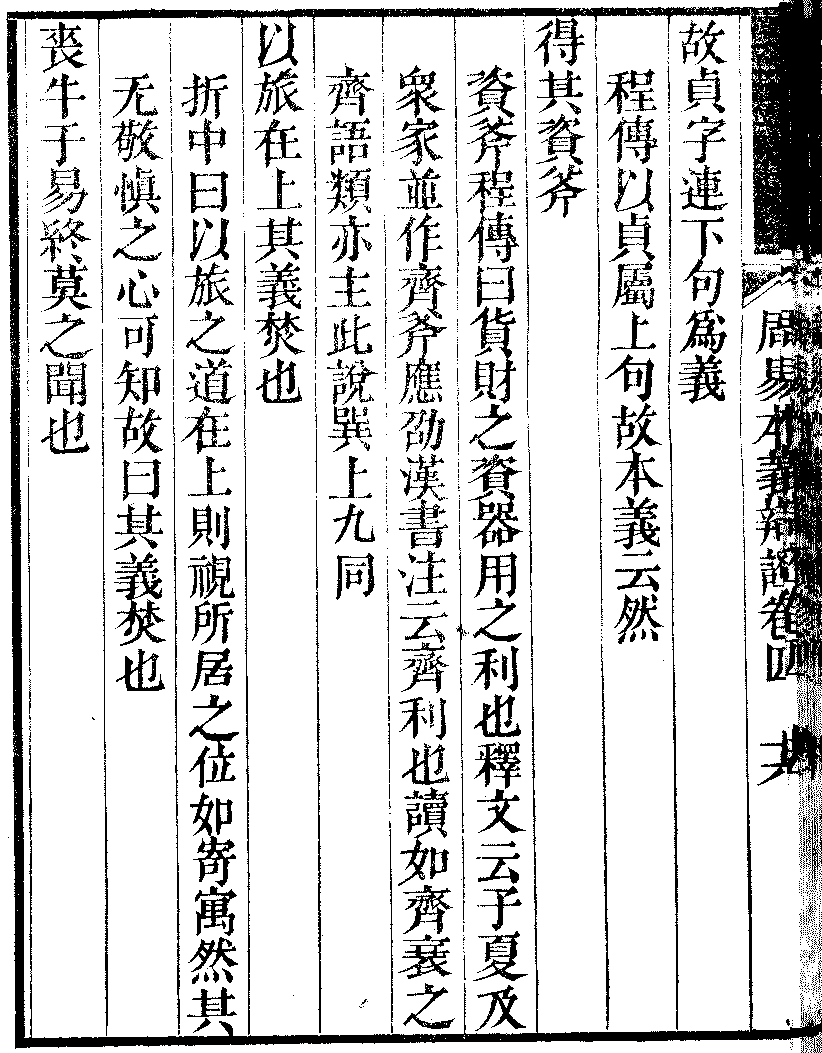 周易本義辨證卷四
故貞字連下句爲義
程傳以貞屬上句故本義云然
得其資斧
資斧程傳曰貨財之資器用之利也釋文云子夏及
衆家並作齊斧應劭漢書注云齊利也讀如齊衰之
齊語類亦主此說巽上九同
以旅在上其義焚也
折中曰以旅之道在上則視所居之位如寄寓然其
无敬慎之心可知故曰其義焚也
喪牛于易終莫之聞也